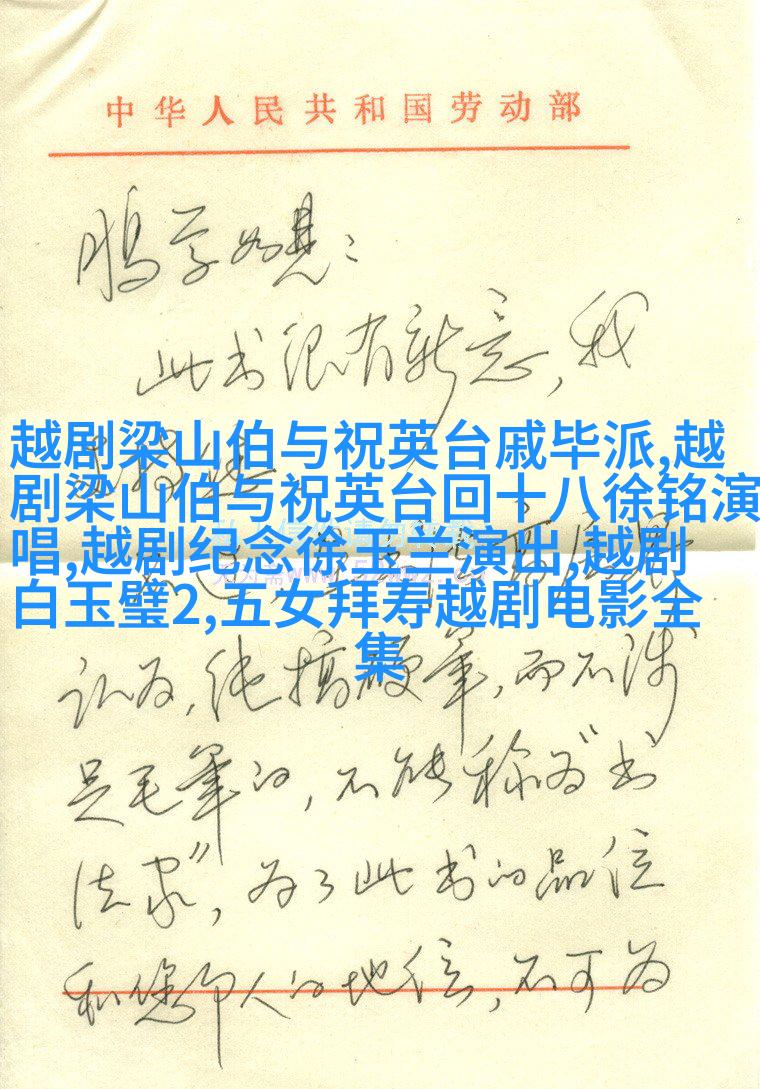 中华人民共和国劳动部
鹏学如晤：
此书很有新意，我
越剧梁山伯与祝英台戚毕派,越
剧梁山伯与祝英台回十八徐铭演
唱,越剧纪念徐玉兰演出,越剧
白玉璧2,五女拜寿越剧电影全
集
认为，纯搞硬笔，而不涉
足毛笔的，不能称为“书
法家”，为了此书的品位
和您个人的地位，不可为